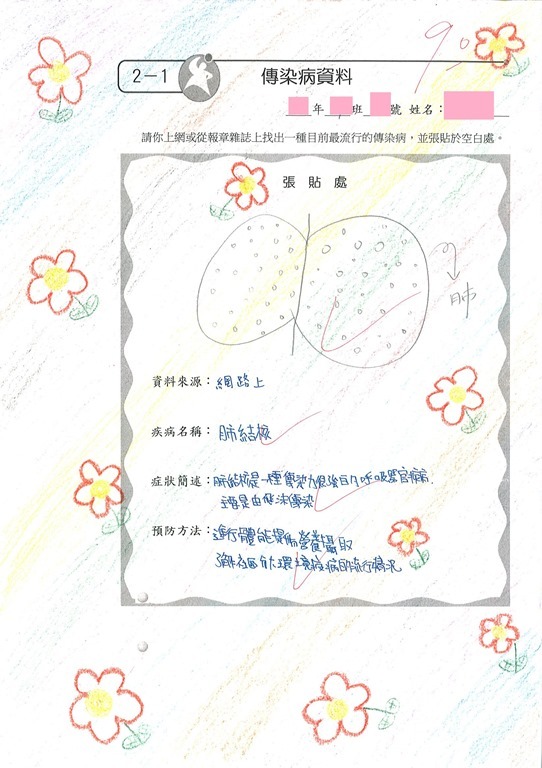 90
2-1 傳染病資料
年 班 號 姓名：
請你上網或從報章雜誌上找出一種目前最流行的傳染病，並張貼於空白處。
張貼處
肺
資料來源：網路上
疾病名稱：肺結核
症狀簡述：肺結核是一種傳染力很強的呼吸器官病，
主要是由飛沫傳染
預防方法：進行體能提倡營養攝取
了解各面大環境疫病的流行情況